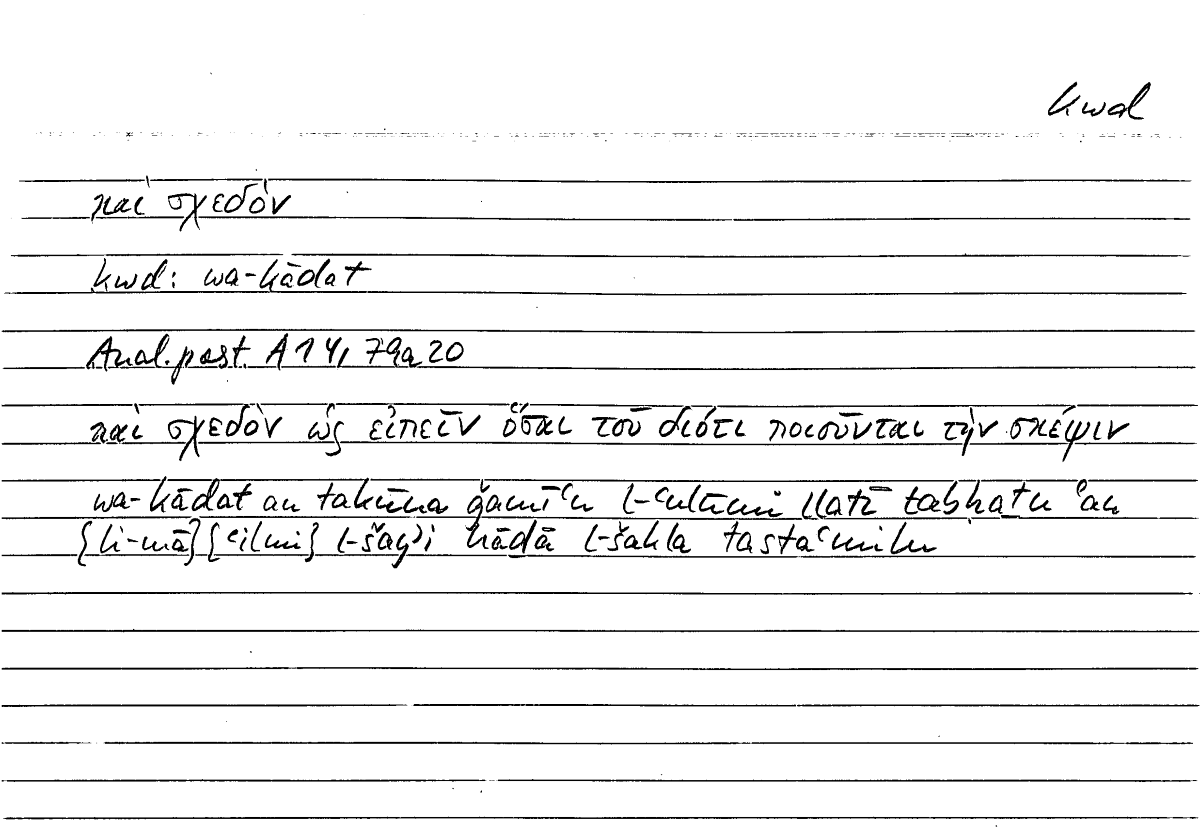 kwd
καὶ σχεδὸν
kwd: wa-kādat
Anal. post. A 14, 79a20
καὶ σχεδὸν ὡς εἰπεῖν ὅσαι τοῦ διότι ποιοῦνται τὴν σκέψιν
wa-kādat an takūna ǧamīʿu l-ʿulūmi llatī tabḥaṯu ʿan
{li-mā} {ʿilmi} l-šayʾi hāḏā l-šakla tastaʿmilu